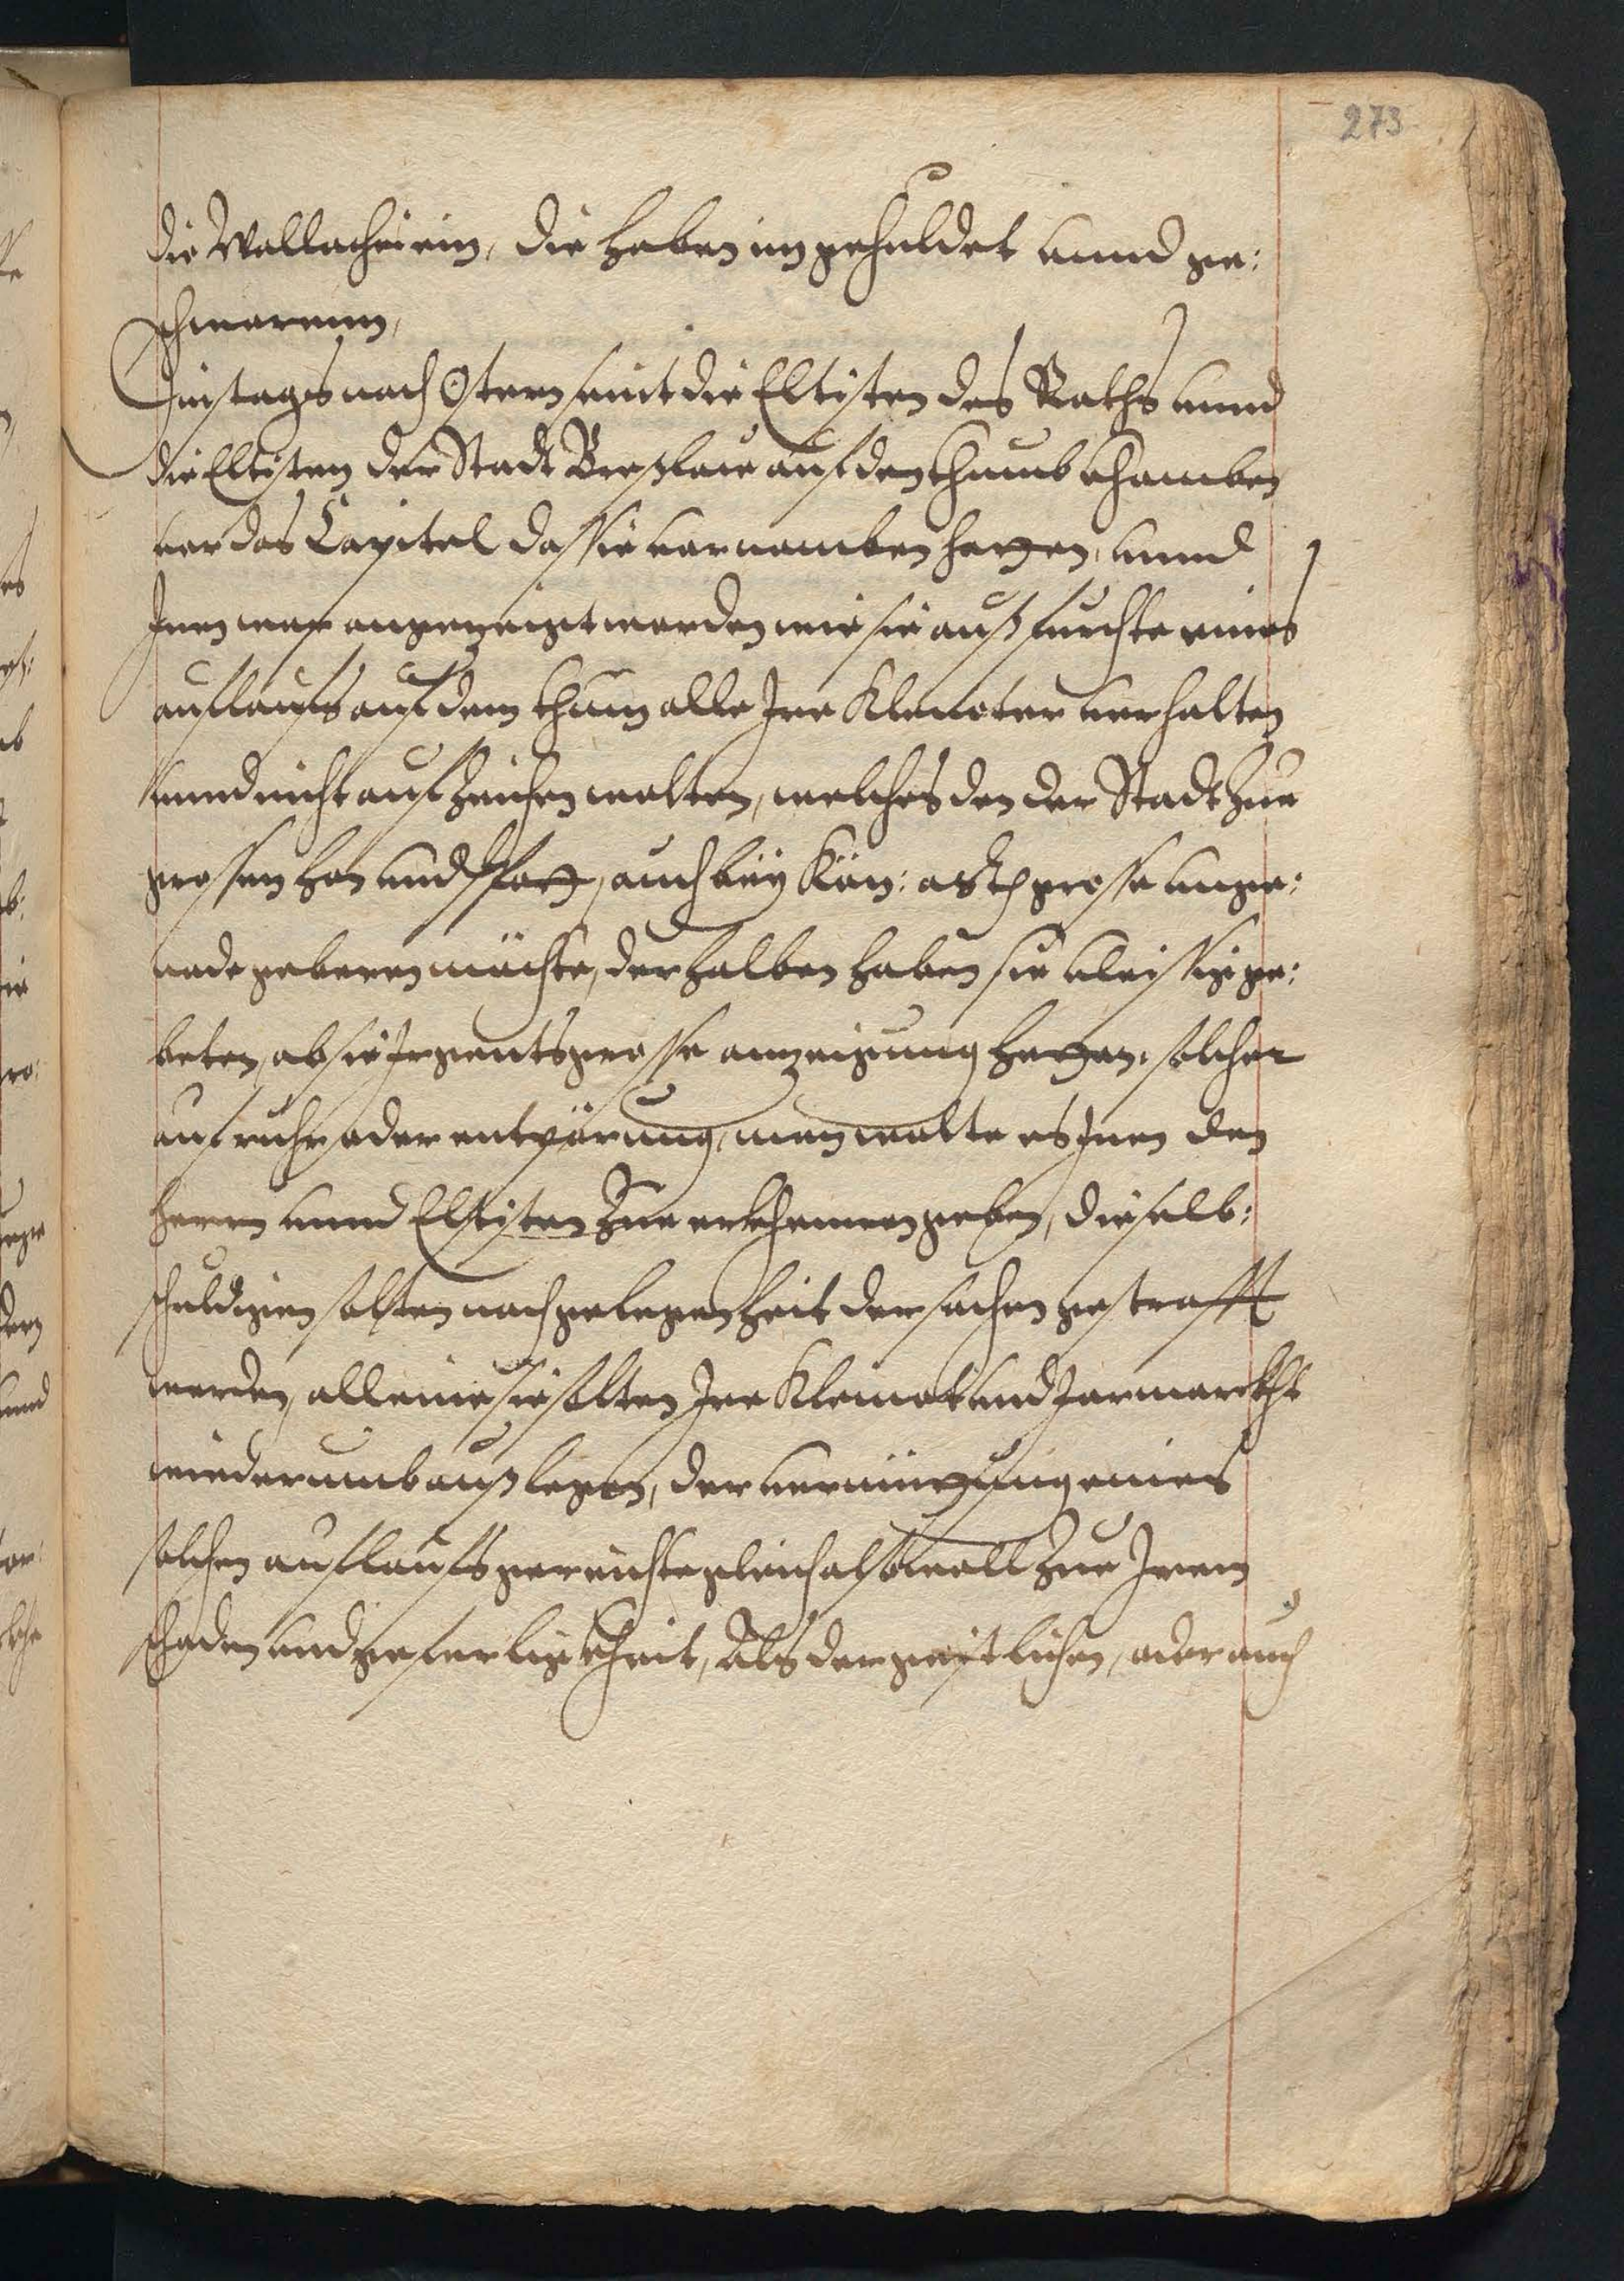 273
die Wallachei ein, die haben im gehuldet vnnd ge:
schworenn,
Dinstags nach Ostern seint die Eltisten des Raths vnnd
die Eltisten der Stadt Breßlaw auf den Thumb khomben
vor das Capitel das sie vornomben hetten, vnnd
Inen wer angezeigt worden wie sie auß furchte eines
auflaufs auf dem Thum alle Ire Klenoter verhalten
vnnd nicht auf Zeichen wolten, welches den der Stadt Zue
grossen hon vnd spott, auch bey Kön: Mtt grosse vnge:
nade geberen möchte, derhalben haben sie vleissig ge:
beten, ob sie Irgents grosse anzeigung hetten, solcher
aufruhr oder entpörung, man wolte es Inen den
herrn vnnd Eltisten Zue erkhennen geben, dieselb:
schuldigen solten nach gelegenheit der sachen gestrafft
werden, alleine sie solten Ire Klenot vnd Jarmarckht
wiederumb auß legen, der vernützung eines
solchen auflaufs gereichte gleich also woll Zue Irem
schaden vnd geferligkheit, Als der geistlichen, oder auch